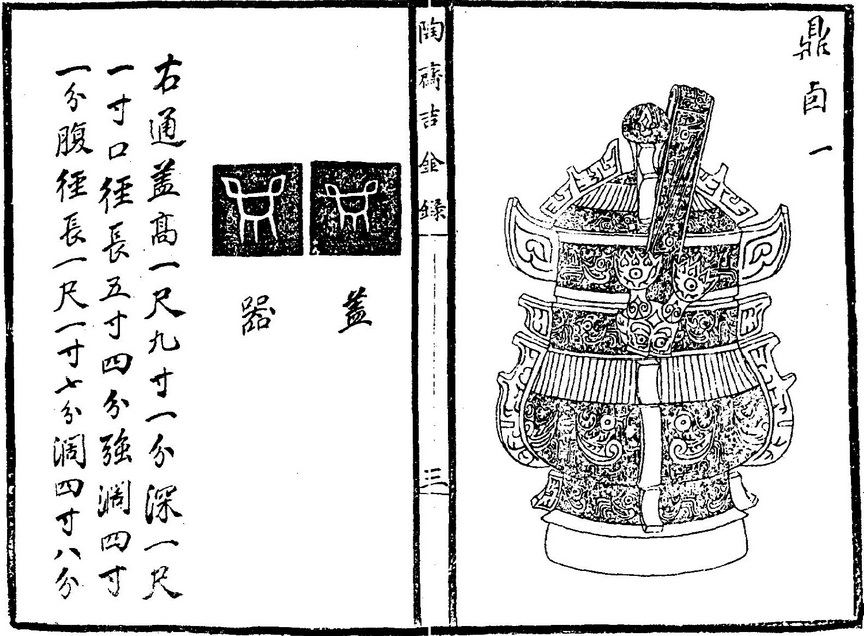 鼎卣一
陶齋吉金錄
三
蓋
器
右通蓋高一尺九寸一分深一尺
一寸口徑長五寸四分強濶四寸
一分腹徑長一尺一寸七分濶四寸八分